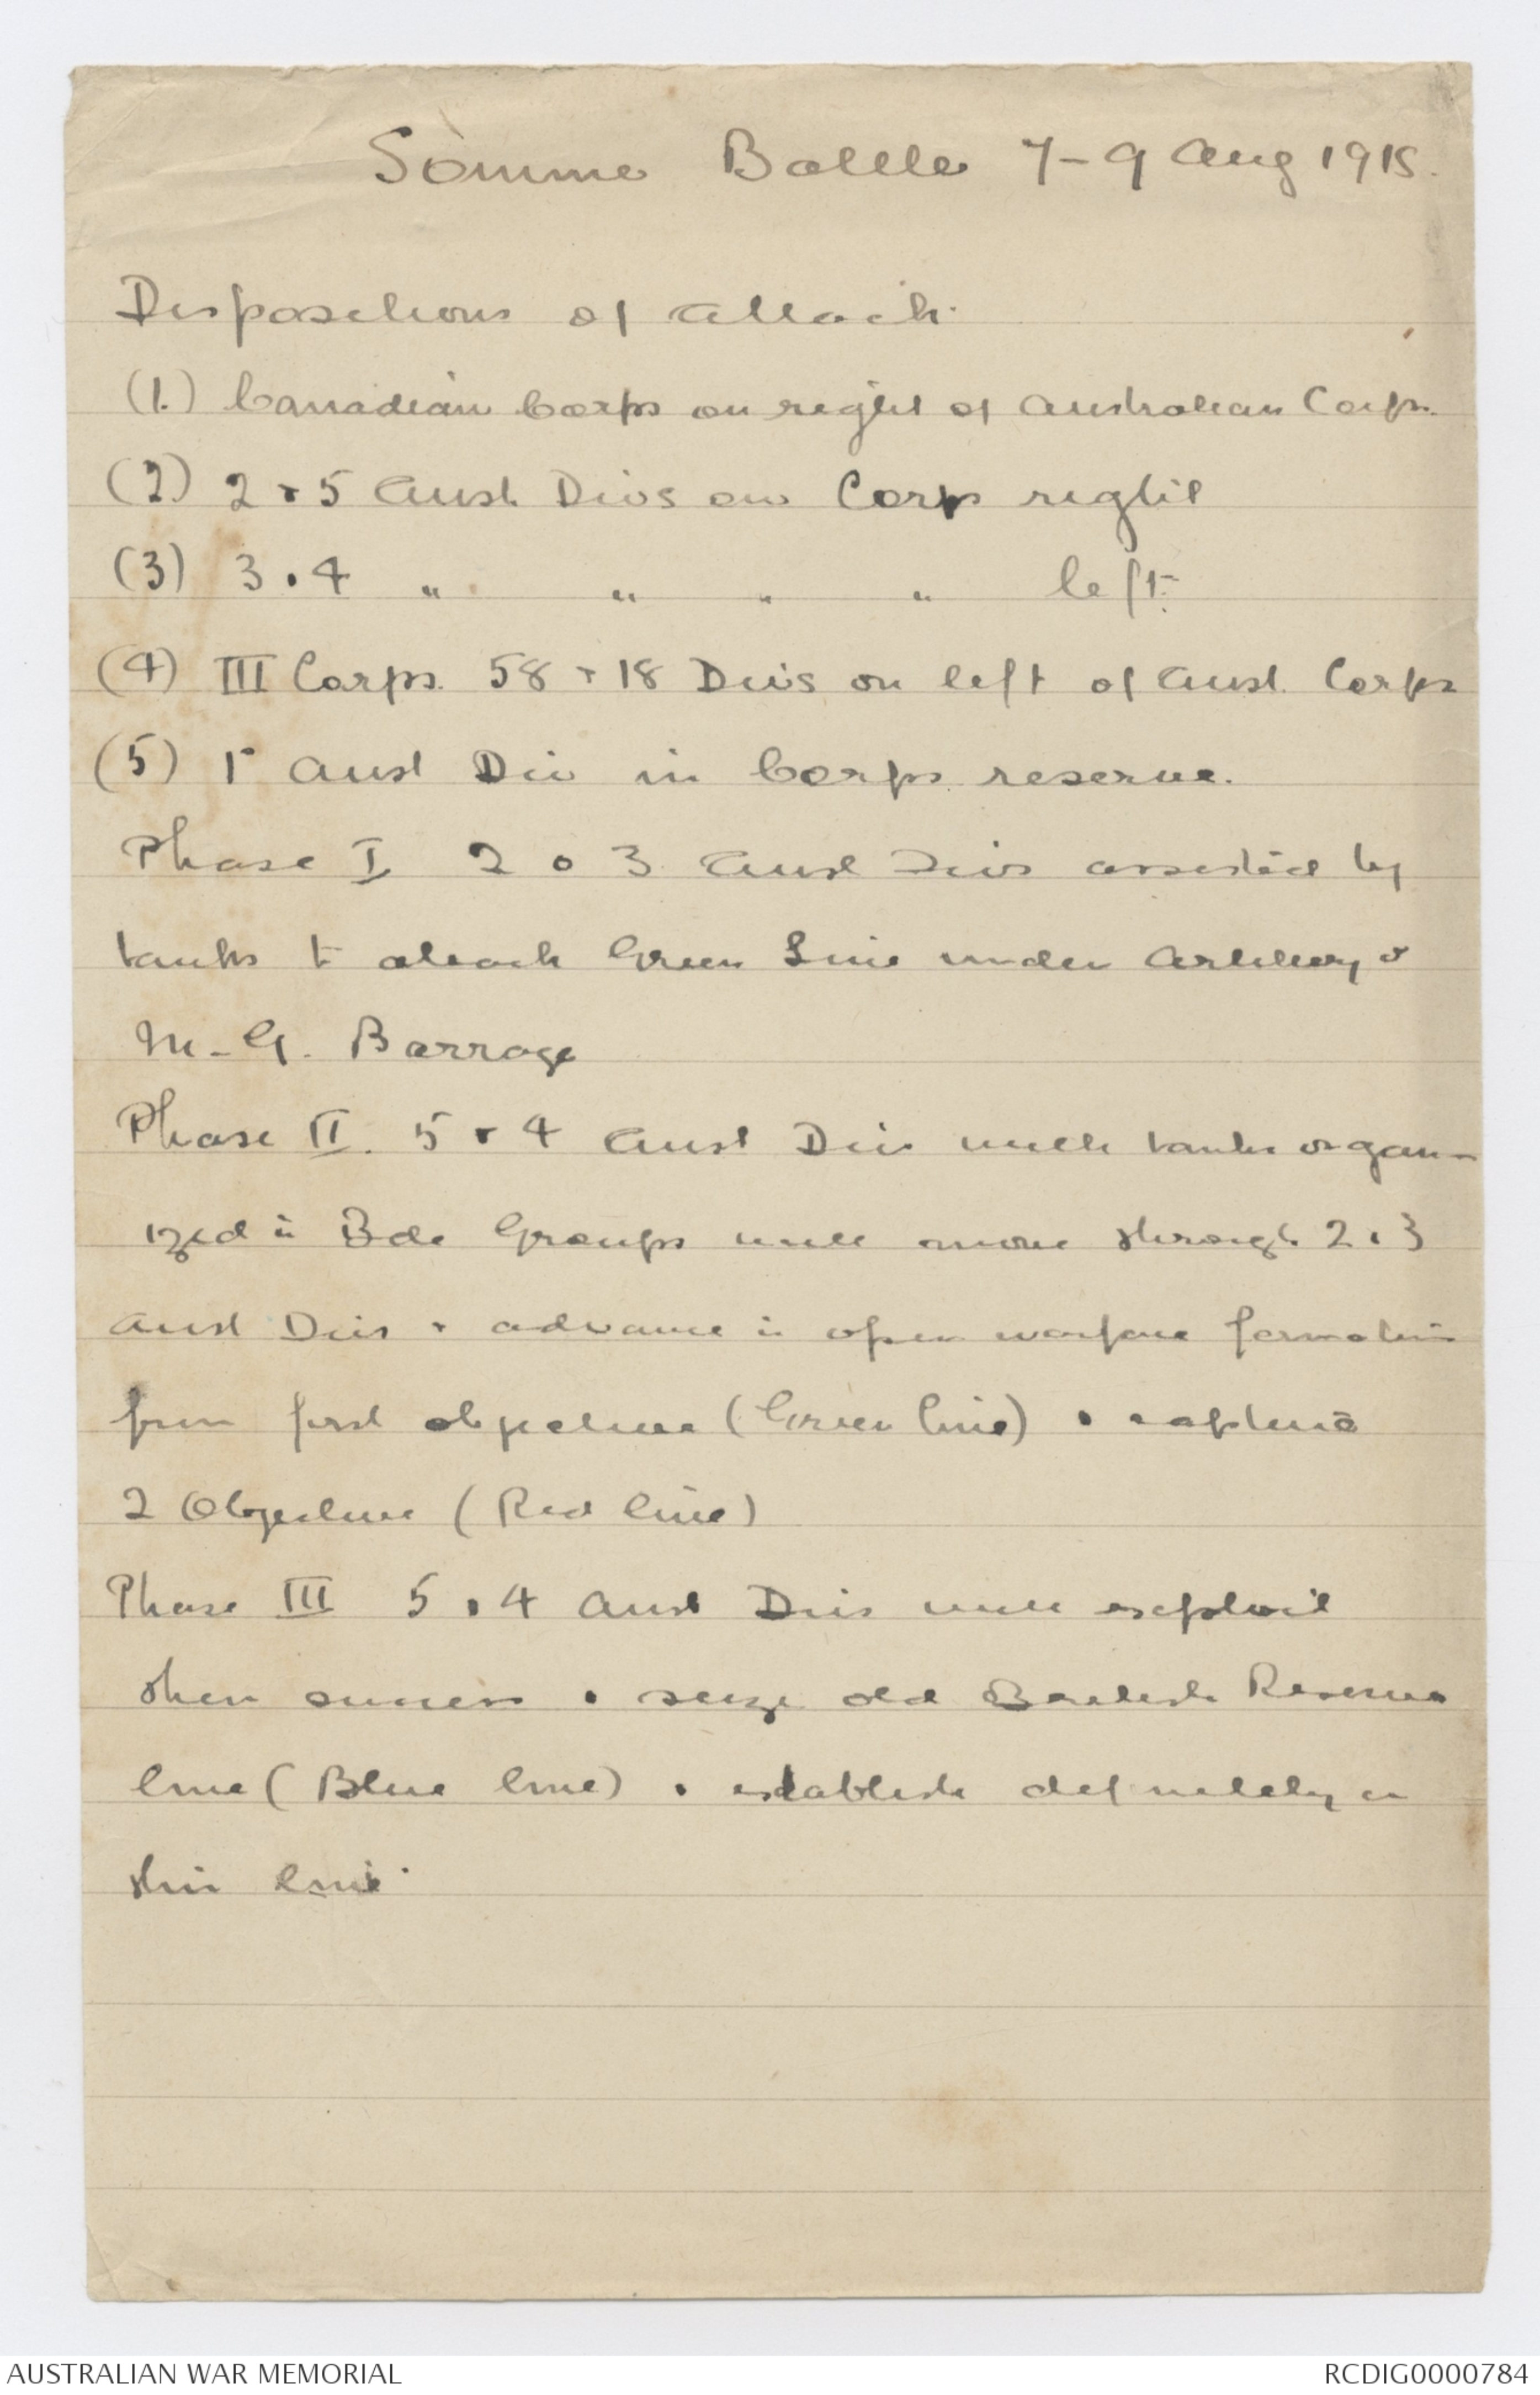 Somme Battle 7-9 Aug 1918.
Dispositions of attack.
(1.) Canadian Corps on right of Australian Corps.
(2) 2 & 5 Aust. Divs on Corps right
(3) 3 & 4 " " " " left.
(4) III Corps. 58 & 18 Divs on left of Aust. Corps
(5) 1st Aust Div in Corps reserve.
Phase I 2 & 3 Aust Divs assisted by
tanks to attack Green Line under Artillery &
M-G. Barrage
Phase II. 5 & 4 Aust Div with tanks organ-
ized in Bde Groups will move through 2 & 3
Aust Divs & advance in open warfare formation
from first objective (Green line) & capture
2 Objective (Red line)
Phase III 5 & 4 Aust Divs will exploit
their success & seize old British Reserve
line (Blue line) & establish definitely on
this line.
AUSTRALIAN WAR MEMORIAL
RCDIG0000784